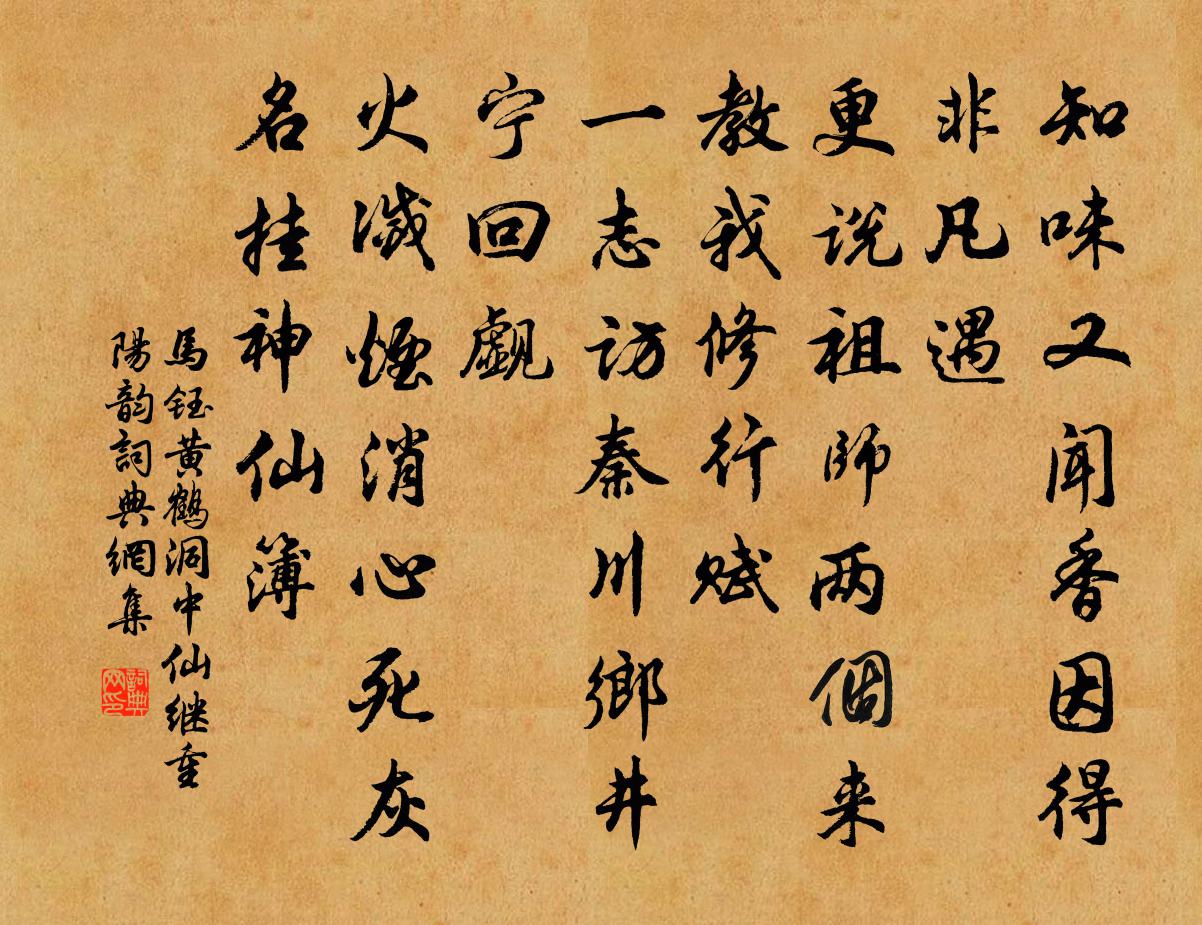 知味又闻香因得
非凡遇
更说祖师两個来
教我修行赋
一志访秦川鄉井
宁回觑
火滅煙消心死灰
名挂神仙簿
馬鈺黄鶴洞中仙继重
陽韵詞典網集
詞典
网印